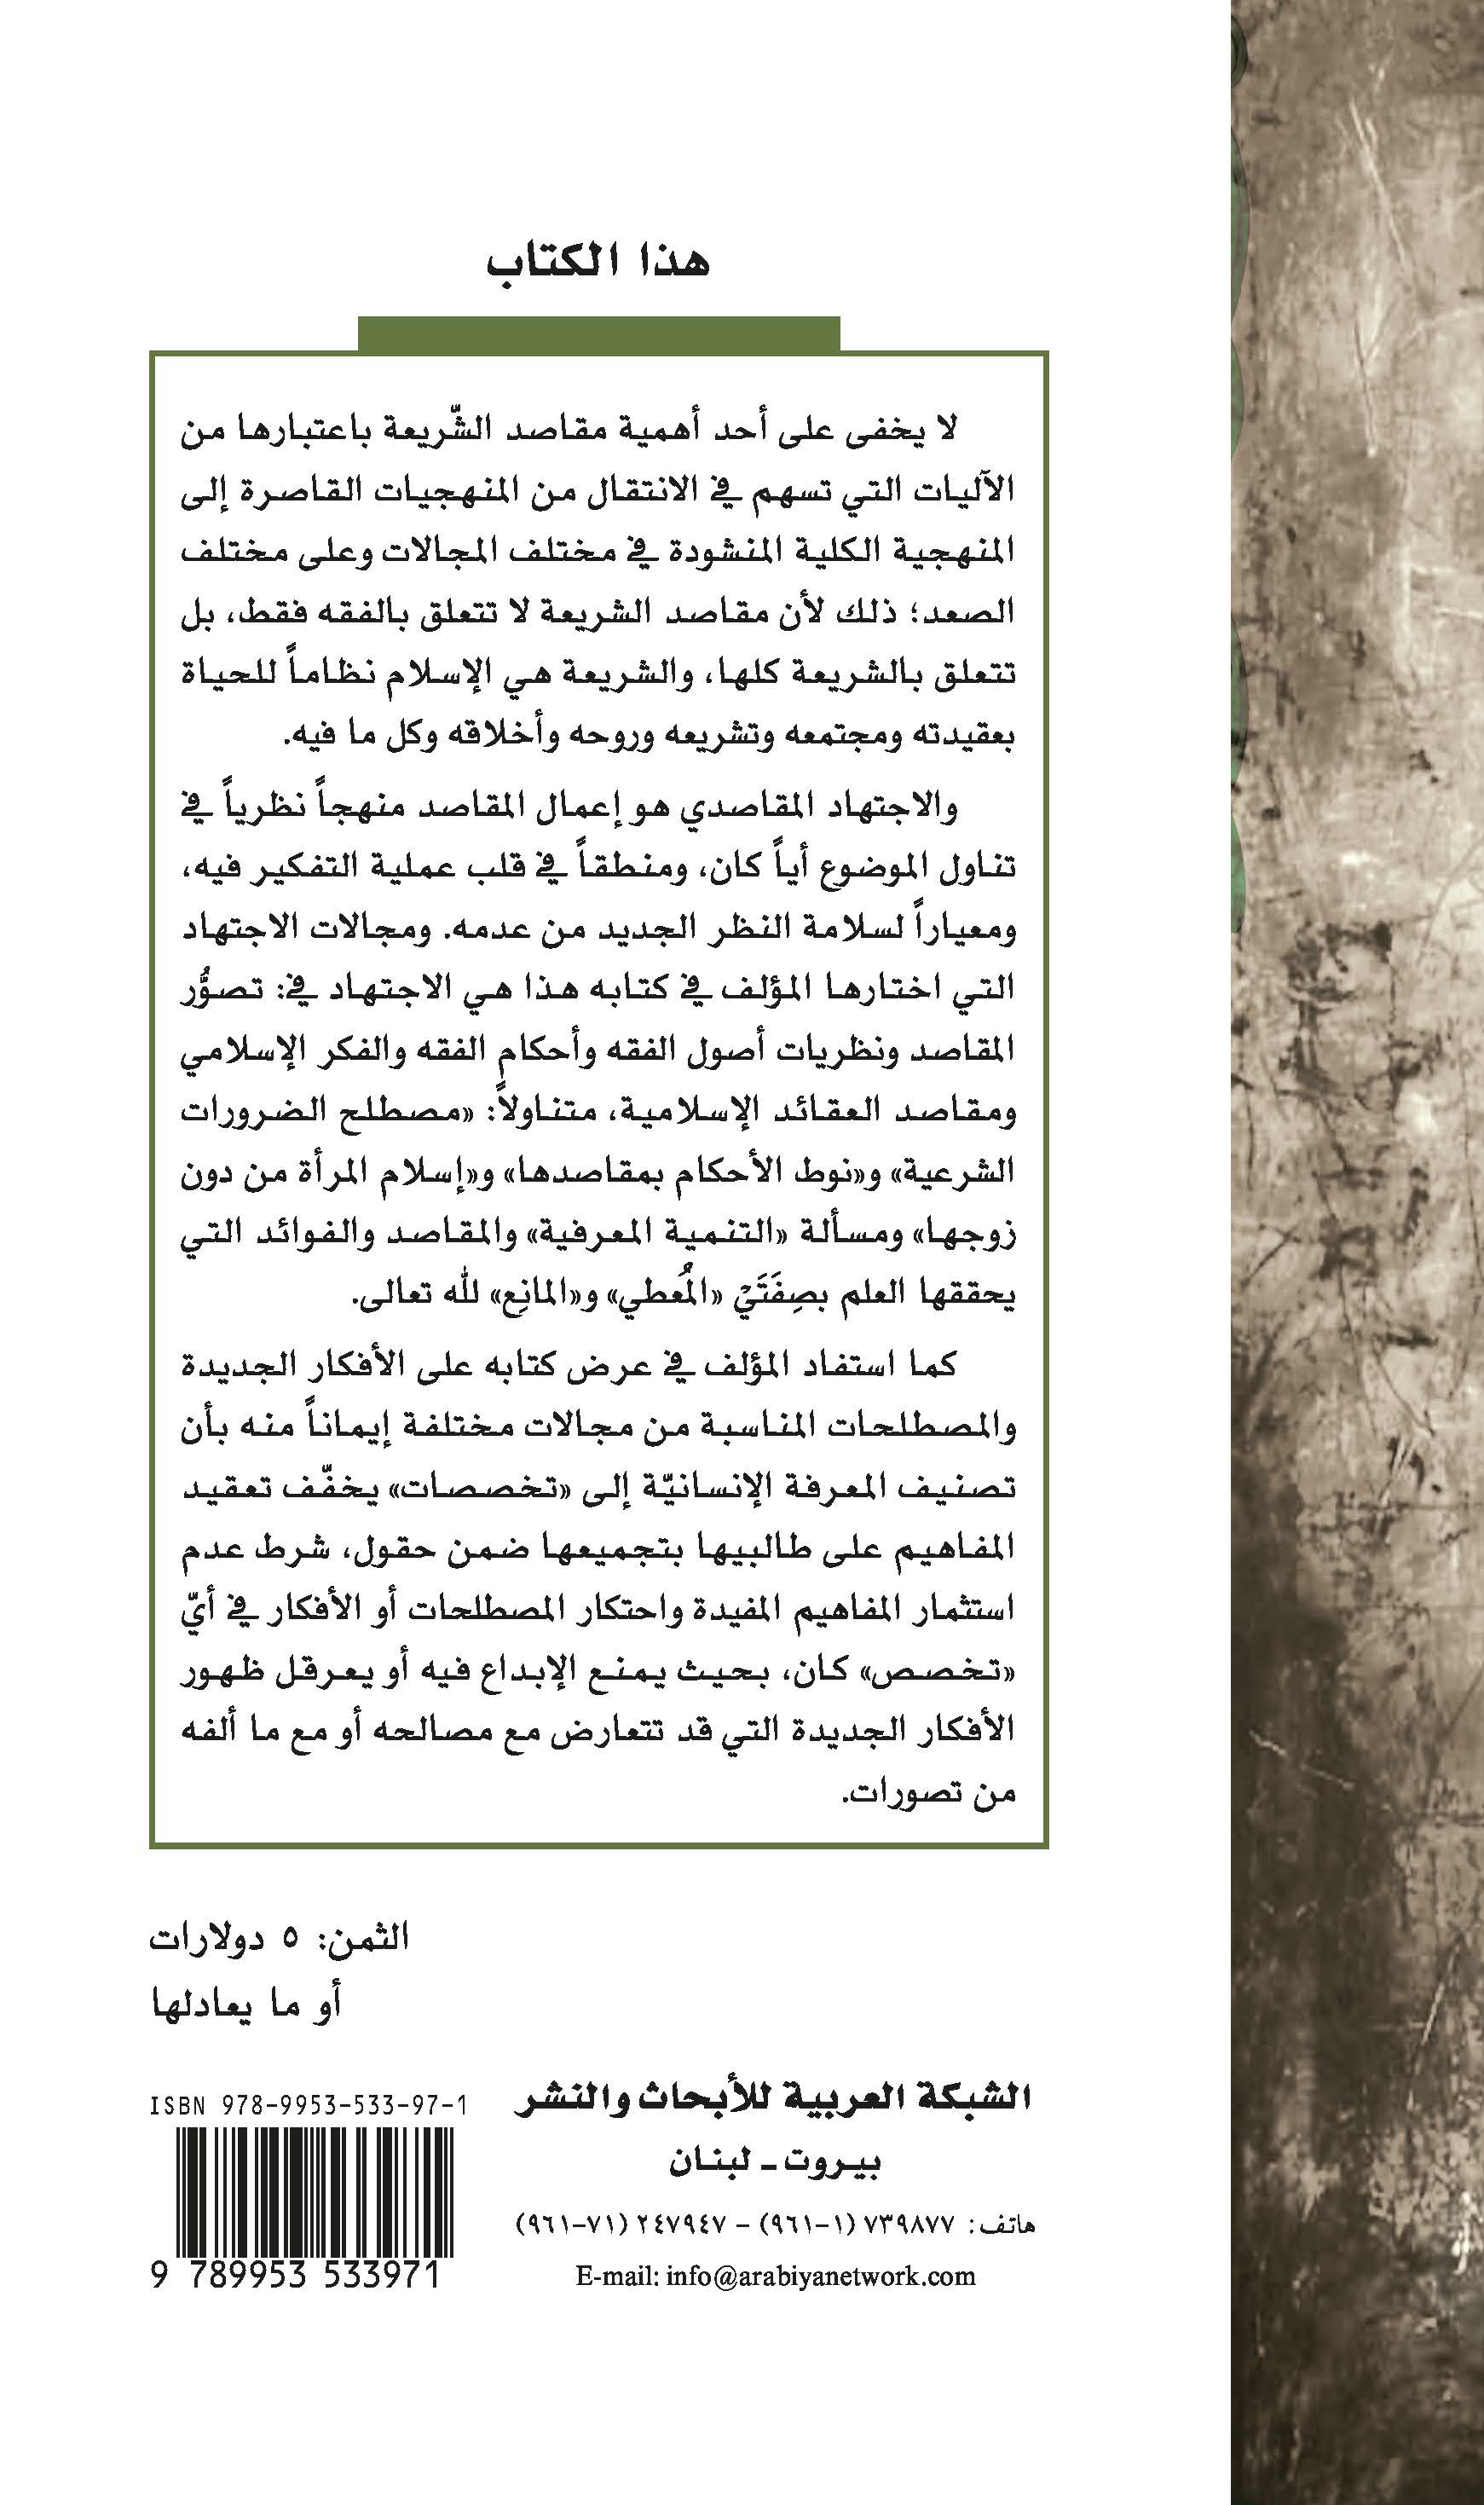 هذا الكتاب
لا يخفى على أحد أهمية مقاصد الشّريعة باعتبارها من
الآليات التي تسهم في الانتقال من المنهجيات القاصرة إلى
المنهجية الكلية المنشودة في مختلف المجالات وعلى مختلف
الصعد؛ ذلك لأن مقاصد الشريعة لا تتعلق بالفقه فقط، بل
تتعلق بالشريعة كلها، والشريعة هي الإسلام نظاماً للحياة
بعقيدته ومجتمعه وتشريعه وروحه وأخلاقه وكل ما فيه.
والاجتهاد المقاصدي هو إعمال المقاصد منهجاً نظرياً في
تناول الموضوع أياً كان، ومنطقاً في قلب عملية التفكير فيه،
ومعياراً لسلامة النظر الجديد من عدمه. ومجالات الاجتهاد
التي اختارها المؤلف في كتابه هذا هي الاجتهاد في: تصوُّر
المقاصد ونظريات أصول الفقه وأحكام الفقه والفكر الإسلامي
ومقاصد العقائد الإسلامية، متناولاً: «مصطلح الضرورات
الشرعية» و«نوط الأحكام بمقاصدها» و«إسلام المرأة من دون
زوجها» ومسألة «التنمية المعرفية» والمقاصد والفوائد التي
يحققها العلم بصِفَتَيْ «المُعطي» و«المانِع» لله تعالى.
كما استفاد المؤلف في عرض كتابه على الأفكار الجديدة
والمصطلحات المناسبة من مجالات مختلفة إيماناً منه بأن
تصنيف المعرفة الإنسانيّة إلى «تخصصات» يخفّف تعقيد
المفاهيم على طالبيها بتجميعها ضمن حقول، شرط عدم
استثمار المفاهيم المفيدة واحتكار المصطلحات أو الأفكار في أيّ
«تخصص» كان، بحيث يمنع الإبداع فيه أو يعرقل ظهور
الأفكار الجديدة التي قد تتعارض مع مصالحه أو مع ما ألفه
من تصورات.
الثمن: ٥ دولارات
أو ما يعادلها
الشبكة العربية للأبحاث والنشر
بيروت ـ لبنان
هاتف: ٧٣٩٨٧٧ (١-٩٦١) - ٢٤٧٩٤٧ (٧١-٩٦١)
E-mail: info@arabiyanetwork.com
ISBN 978-9953-533-97-1
9 789953 533971